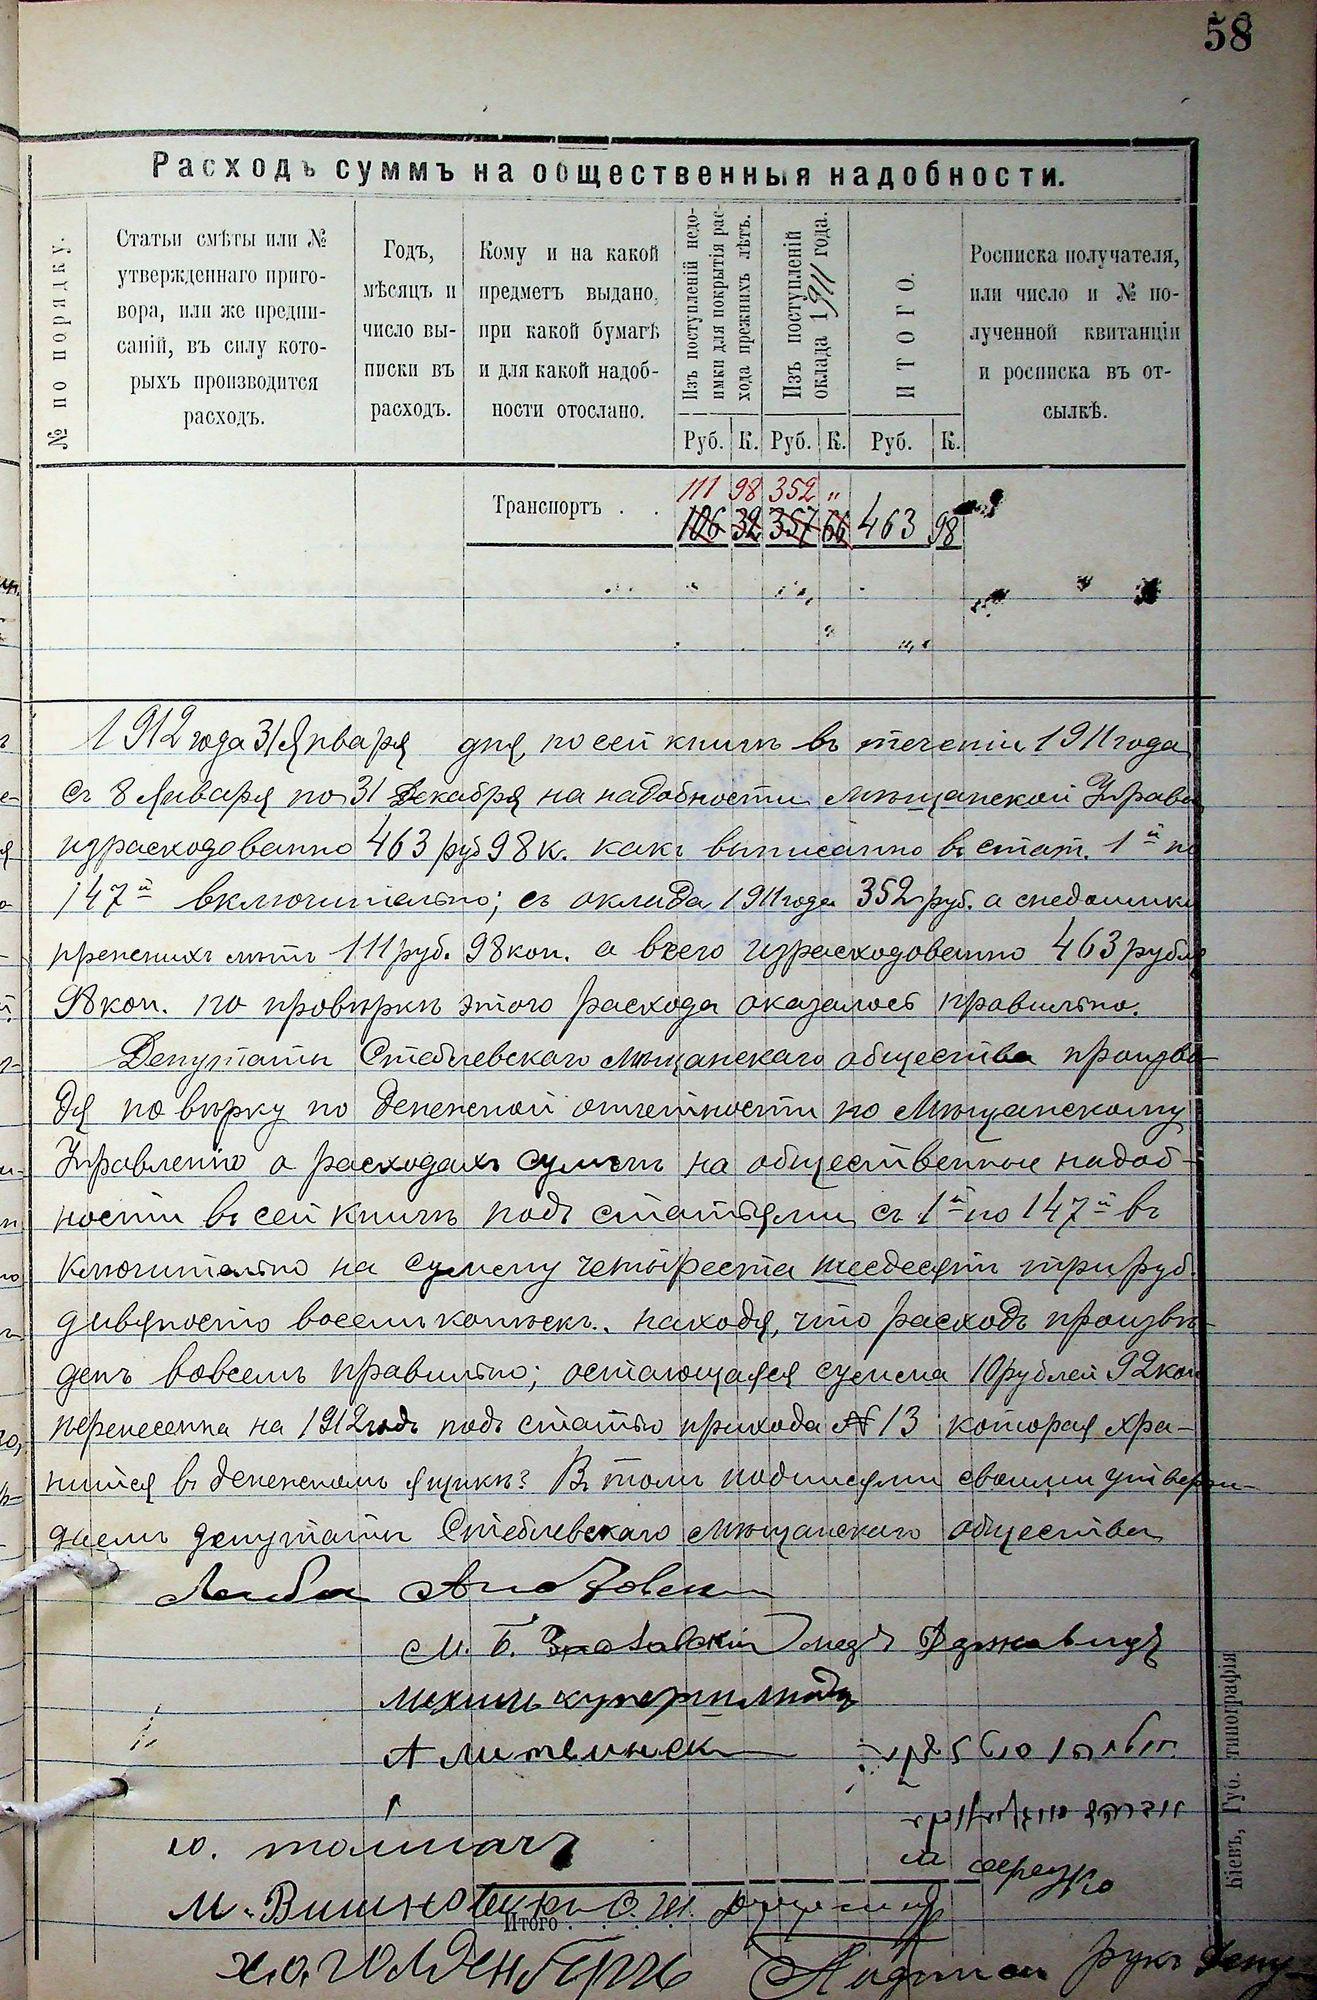 58
Расходъ суммъ на общественныя надобности.
№ по порядку.
Статьи смѣты или № утвержденнаго приговора, или же предписаній, въ силу которыхъ производится расходъ.
Годъ, мѣсяцъ и число выписки въ расходъ.
Кому и на какой предметъ выдано, при какой бумагѣ и для какой надобности отослано.
Изъ поступленій недоимки для покрытія расхода прежнихъ лѣтъ.
Изъ поступленій оклада 1911 года.
ИТОГО.
Росписка получателя, или число и № полученной квитанціи и росписка въ отсылкѣ.
Руб. К. Руб. К. Руб. К.
111 98 352 „
Транспортъ . . 106 32 357 66 463 98
1912 года 31 Января дня, по сей книгѣ въ теченіи 1911 года
съ 8 Января по 31 Декабря на надобности мѣщанской Управы
израсходованно 463 руб 98 к. какъ выписанно в стат. 1й по
147й включительно; съ оклада 1911 года 352 руб. а снедоимки
прежнихъ лѣтъ 111 руб. 98 коп. а всего израсходованно 463 рубля
98 коп. по провѣркѣ этого расхода оказалось правильно.
Депутаты Стеблевскаго мѣщанскаго общества произво-
дя повѣрку по денежной отчетности по Мѣщанскому
Управленію о расходахъ суммъ на общественные надоб-
ности в сей книгѣ подъ статьями съ 1й по 147й в
ключительно на сумму четыреста шесдесятъ три руб.
дивяносто восемь копѣекъ. находя, что расходъ произве-
денъ вовсемъ правильно; остающаяся сумма 10 рублей 92 коп
перенесенна на 1912 годъ подъ статью прихода № 13 которая хра-
нится в денежномъ ящикѣ? В томъ подписями своими утверж-
даемъ депутаты Стеблевскаго мѣщанскаго общества
Лейба
М. Б.
А Литвинск
Ю. Толмачъ
М. Вишнов
Итого . . . .
Х. О. Голденбергъ рукъ Депу-
Кіевъ, Губ. типографія